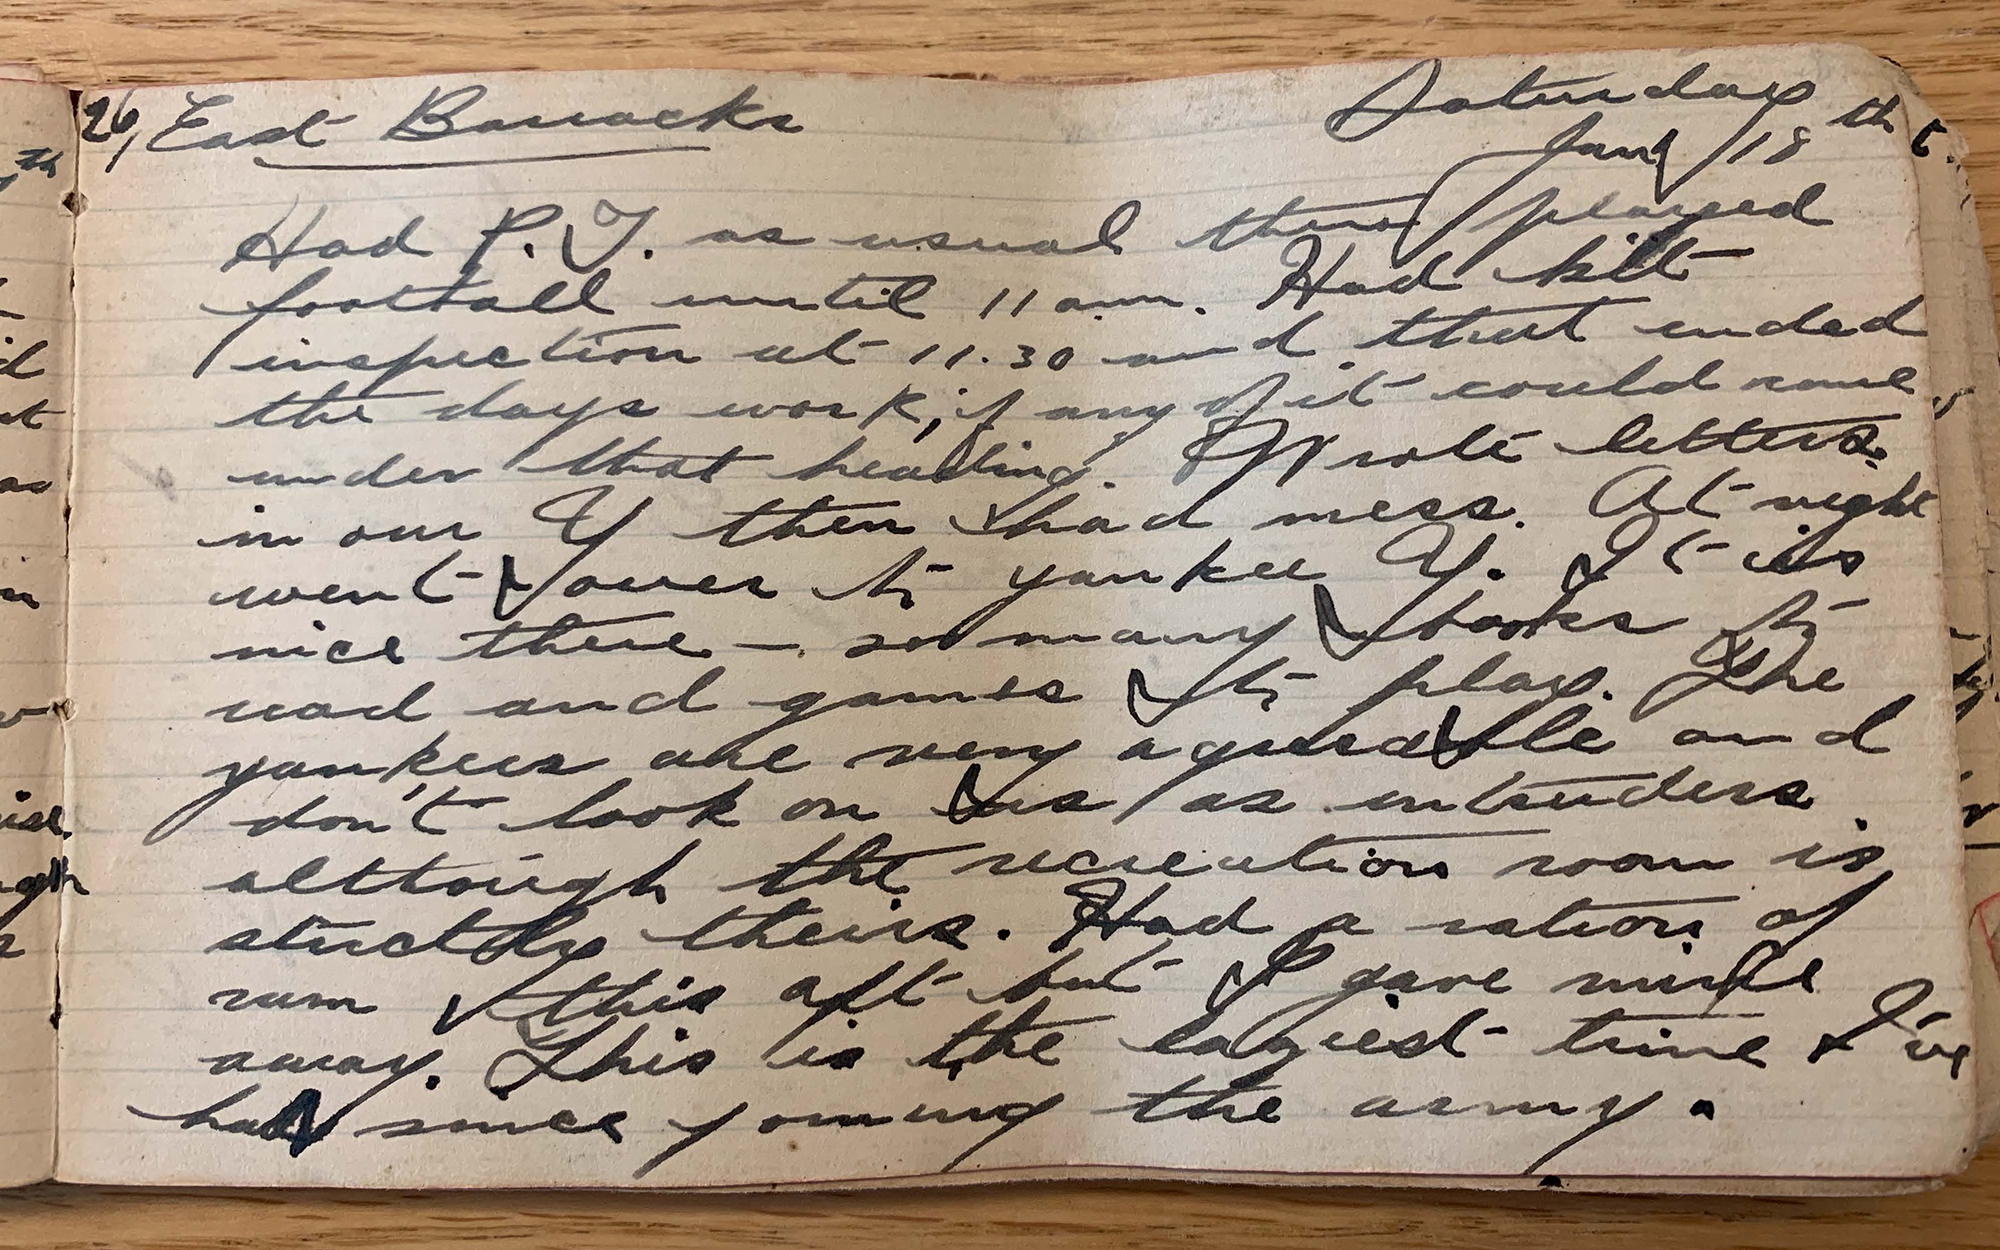 26, East Barracks
Saturday
Jany 18th
Had P.T. as usual then played
football until 11 am. Had kilt
inspection at 11.30 and that ended
the days work, if any of it could come
under that heading. Wrote letters
in our Y then had mess. At night
went over to yankee Y. It is
nice there – so many books to
read and games to play. The
yankees are very agreeable and
don't look on us as intruders
although the recreation room is
strictly theirs. Had a ration of
rum this aft but I gave mine
away. This is the laziest time I've
had since joining the army.